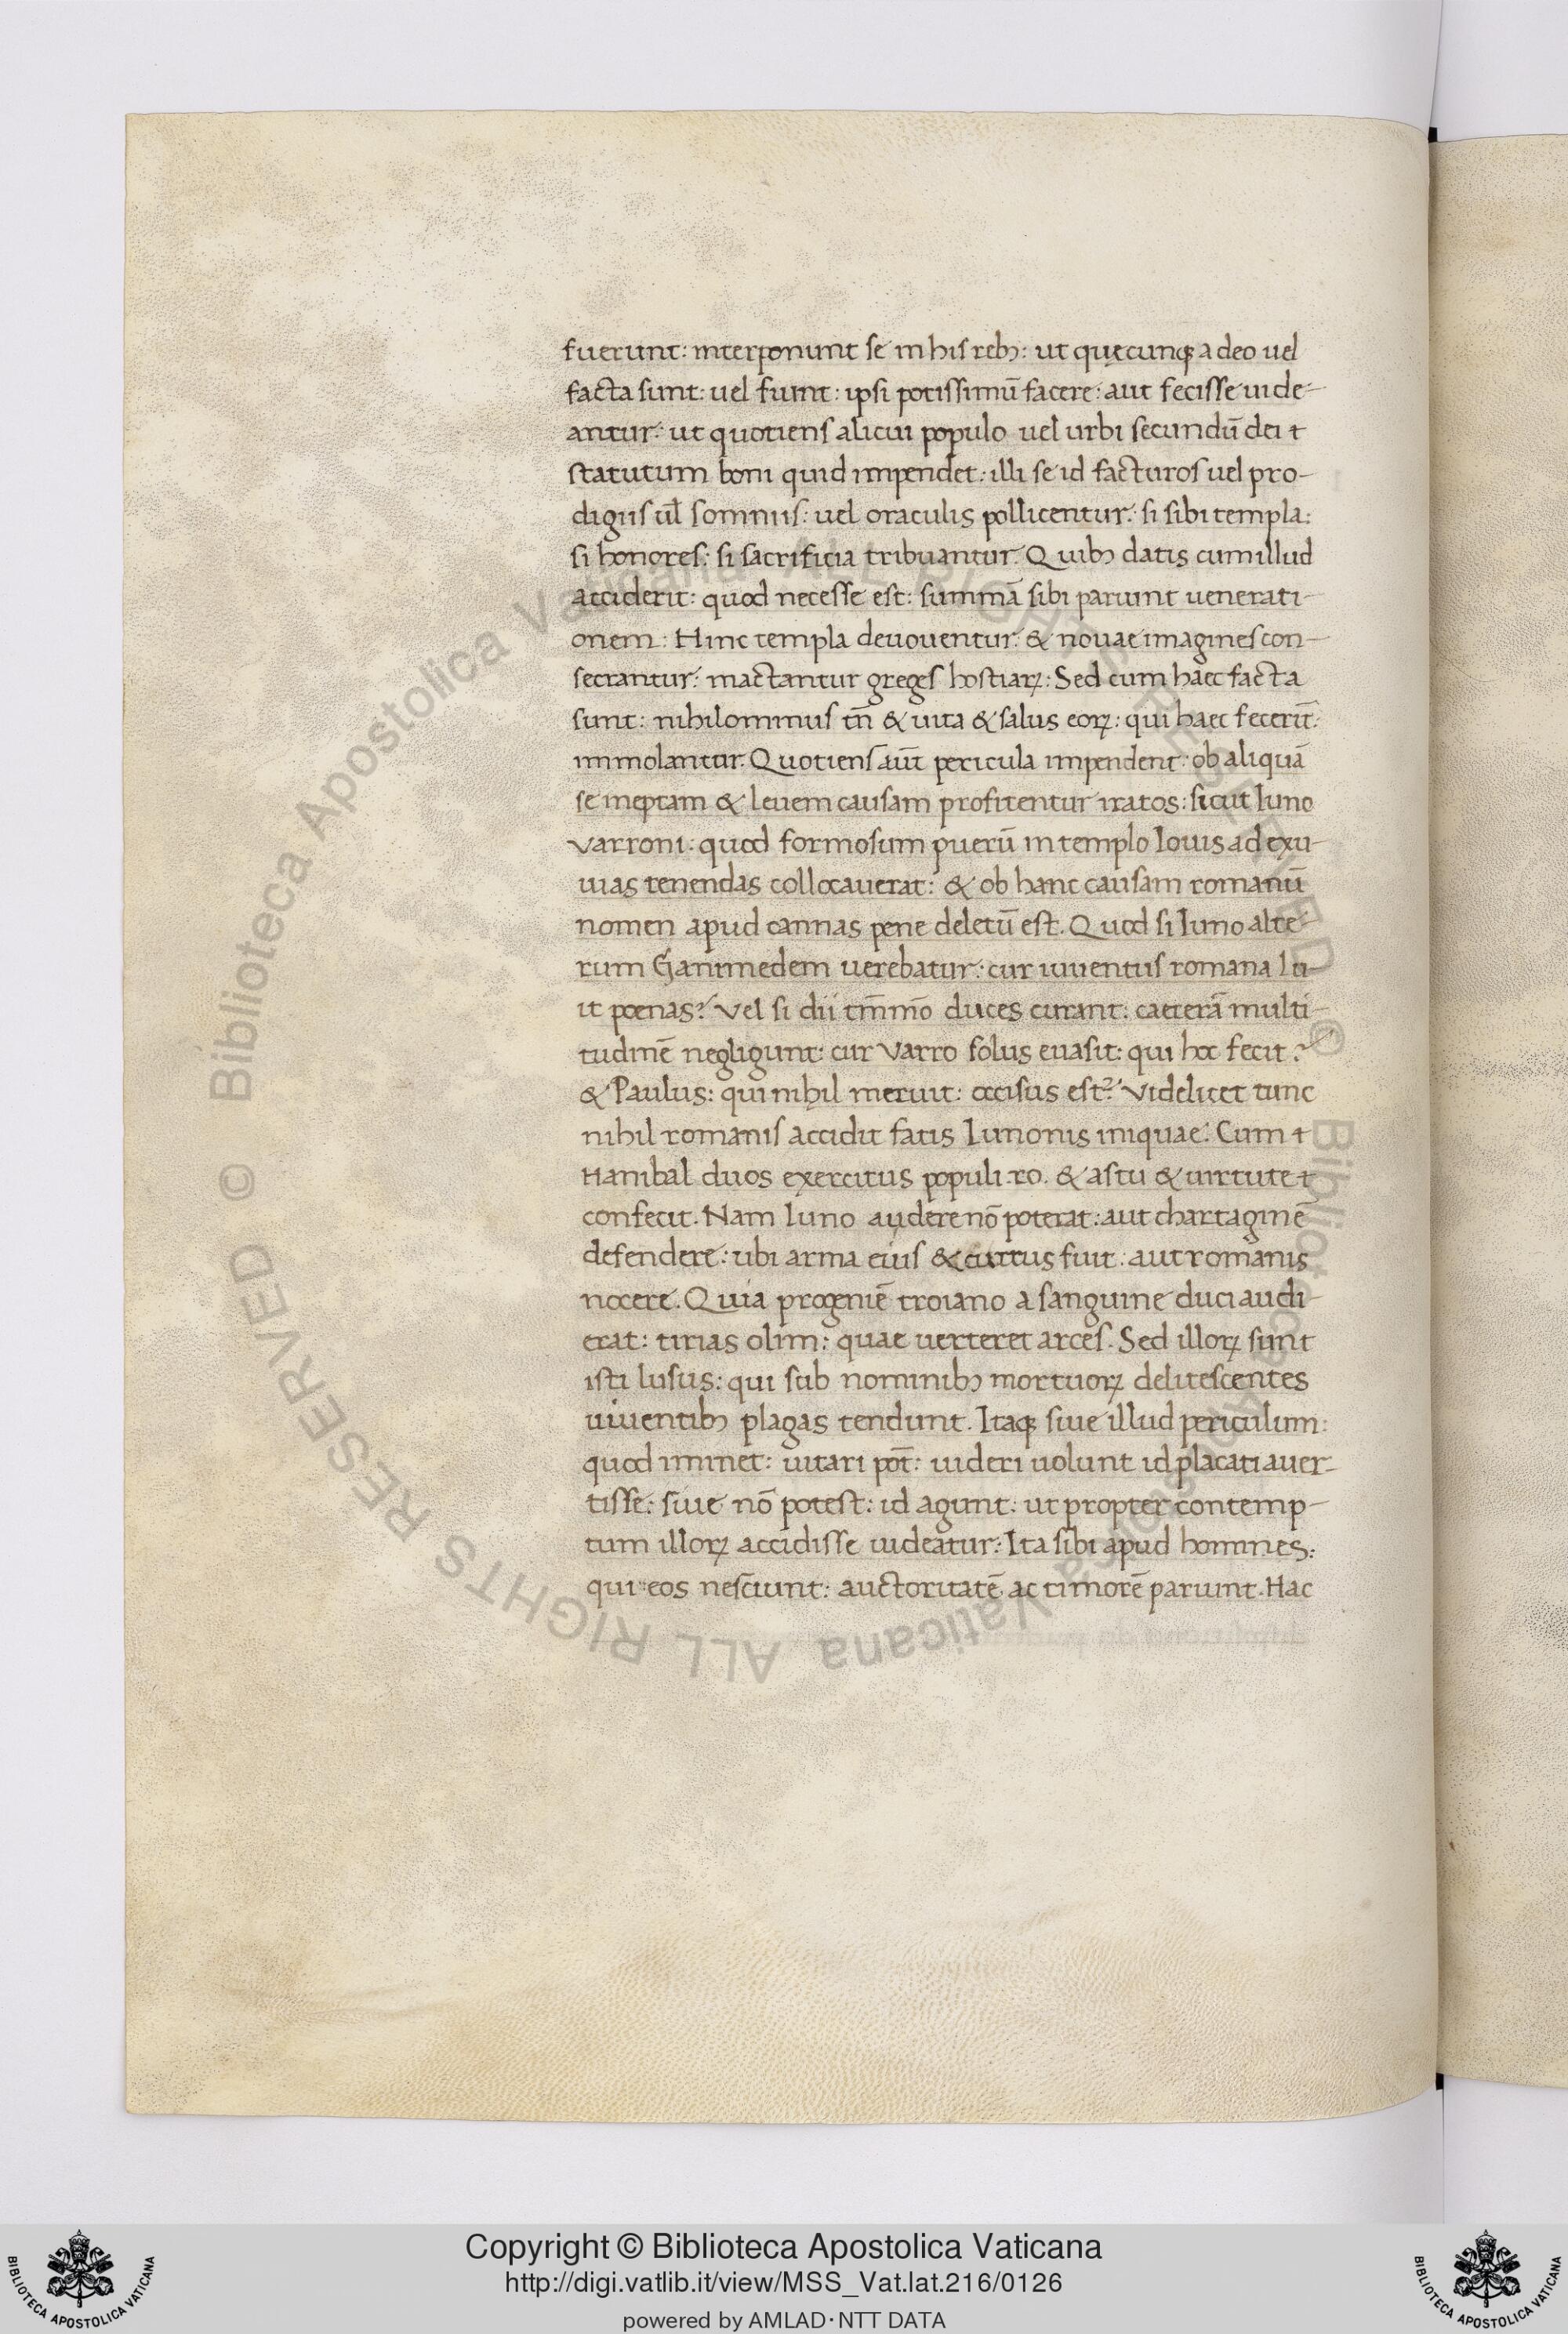 fuerunt: interponunt se in his rebꝫ: ut quęcunqꝫ a deo uel
facta sunt: uel fiunt: ipsi potissimū facere: aut fecisse uide-
antur: ut quotiens alicui populo uel urbi secundū dei t
statutum boni quid impendet: illi se id facturos uel pro-
digiis ul̄ somniis: uel oraculis pollicentur: si sibi templa:
si honores: si sacrificia tribuantur. Quibꝫ datis cum illud
acciderit: quod necesse est: summā sibi pariunt uenerati-
onem: Hinc templa deuouentur: & nouae imagines con-
secrantur: mactantur greges hostiaꝝ: Sed cum haec facta
sunt: nihilominus tn̄ & uita & salus eoꝝ: qui haec fecerīt:
immolantur. Quotiens aūt pericula impendent: ob aliquā
se ineptam & leuem causam profitentur iratos: sicut Iuno
Varroni: quod formosum puerū in templo Iouis ad exu-
uias tenendas collocauerat: & ob hanc causam romanū
nomen apud cannas pene deletū est. Quod si Iuno alte-
rum Ganimedem uerebatur: cur iuuentus romana lu-
it poenas? Vel si dii tm̄mō duces curant: caeterā multi-
tudinē negligunt: cur Varro solus euasit: qui hoc fecit?
& Paulus: qui nihil meruit: occisus est? Videlicet tunc
nihil romanis accidit fatis Iunonis iniquae: Cum t
Hanibal duos exercitus populi .ro. & astu & uirtute t
confecit. Nam Iuno audere nō poterat: aut chartaginē
defendere: ubi arma eius & currus fuit: aut romanis
nocere. Quia progeniē troiano a sanguine duci audi-
erat: tirias olim: quae uerteret arces. Sed illoꝝ sunt
isti lusus: qui sub nominibꝫ mortuoꝝ delitescentes
uiuentibꝫ plagas tendunt. Itaqꝫ siue illud periculum:
quod iminet: uitari pōt: uideri uolunt id placati auer-
tisse: siue nō potest: id agunt: ut propter contemp-
tum illoꝝ accidisse uideatur: Ita sibi apud homines:
qui eos nesciunt: auctoritatē ac timorē pariunt. Hac
Copyright © Biblioteca Apostolica Vaticana
http://digi.vatlib.it/view/MSS_Vat.lat.216/0126
powered by AMLAD·NTT DATA
BIBLIOTECA APOSTOLICA VATICANA
BIBLIOTECA APOSTOLICA VATICANA
© Biblioteca Apostolica Vaticana ALL RIGHTS RESERVED © Biblioteca Apostolica Vaticana ALL RIGHTS RESERVED